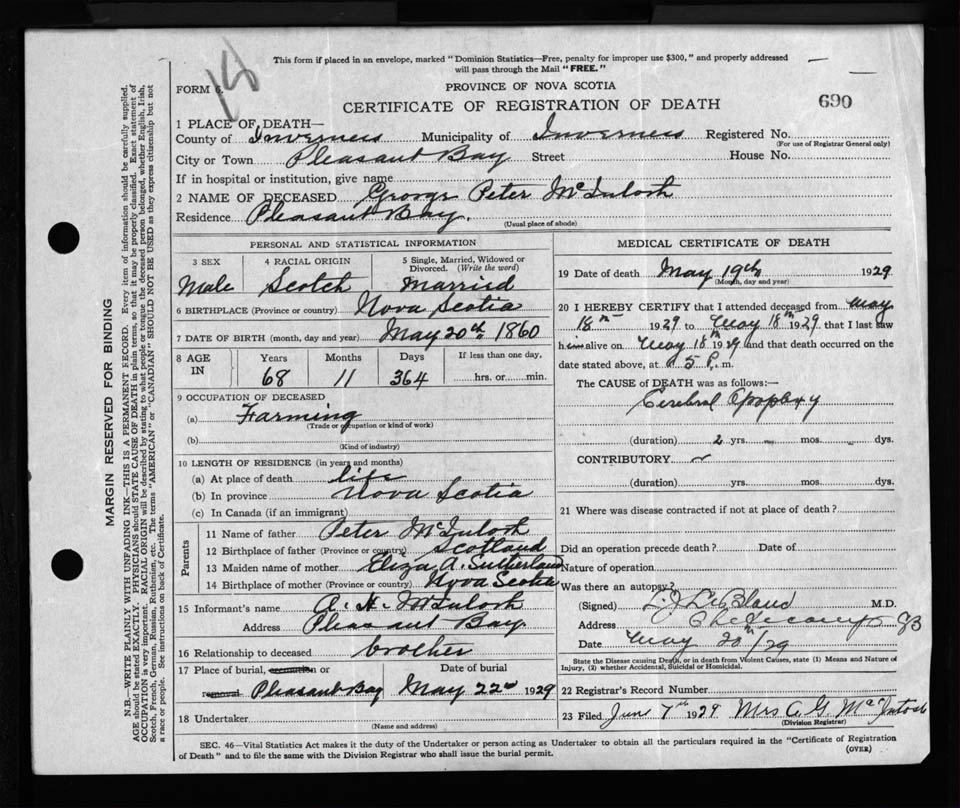 14
This form if placed in an envelope, marked "Dominion Statistics—Free, penalty for improper use $300," and properly addressed
will pass through the Mail "FREE."
FORM 6.
PROVINCE OF NOVA SCOTIA
CERTIFICATE OF REGISTRATION OF DEATH
690
1 PLACE OF DEATH—
County of Inverness Municipality of Inverness Registered No.
(For use of Registrar General only)
City or Town Pleasant Bay Street House No.
If in hospital or institution, give name
2 NAME OF DECEASED George Peter McIntosh
Residence Pleasant Bay.
(Usual place of abode)
PERSONAL AND STATISTICAL INFORMATION
3 SEX 4 RACIAL ORIGIN 5 Single, Married, Widowed or
Divorced. (Write the word)
Male Scotch Married
6 BIRTHPLACE (Province or country) Nova Scotia
7 DATE OF BIRTH (month, day and year) May 20th 1860
8 AGE IN Years Months Days If less than one day,
68 11 364 hrs. or min.
9 OCCUPATION OF DECEASED
(a) Farming
(Trade or occupation or kind of work)
(b)
(Kind of industry)
10 LENGTH OF RESIDENCE (in years and months)
(a) At place of death life
(b) In province Nova Scotia
(c) In Canada (if an immigrant)
Parents
11 Name of father Peter McIntosh
12 Birthplace of father (Province or country) Scotland
13 Maiden name of mother Eliza A. Sutherland
14 Birthplace of mother (Province or country) Nova Scotia
15 Informant's name A. H. McIntosh
Address Pleasant Bay
16 Relationship to deceased brother
17 Place of burial, cremation or Date of burial
removal Pleasant Bay May 22nd 1929
18 Undertaker
(Name and address)
MEDICAL CERTIFICATE OF DEATH
19 Date of death May 19th 1929
(Month, day and year)
20 I HEREBY CERTIFY that I attended deceased from May
18th 1929 to May 18th 1929 that I last saw
him alive on May 18th 1929 and that death occurred on the
date stated above, at 5 P. m.
The CAUSE of DEATH was as follows:—
Cerebral Apoplexy
(duration) 2 yrs. mos. dys.
CONTRIBUTORY
(duration) yrs. mos. dys.
21 Where was disease contracted if not at place of death?
Did an operation precede death? Date of
Nature of operation
Was there an autopsy?
(Signed) LeBlanc M.D.
Address Cheticamp CB
Date May 20th/29
State the Disease causing Death, or in death from Violent Causes, state (1) Means and Nature of
Injury, (2) whether Accidental, Suicidal or Homicidal.
22 Registrar's Record Number
23 Filed June 7th 1929 Mrs A G McIntosh
(Division Registrar)
SEC. 46—Vital Statistics Act makes it the duty of the Undertaker or person acting as Undertaker to obtain all the particulars required in the "Certificate of Registration
of Death" and to file the same with the Division Registrar who shall issue the burial permit.
(OVER)
MARGIN RESERVED FOR BINDING
N.B.—WRITE PLAINLY WITH UNFADING INK—THIS IS A PERMANENT RECORD. Every item of information should be carefully supplied.
AGE should be stated EXACTLY. PHYSICIANS should STATE CAUSE OF DEATH in plain terms, so that it may be properly classified. Exact statement of
OCCUPATION is very important. RACIAL ORIGIN will be described by stating to what people or tongue the deceased person belonged, whether English, Irish,
Scotch, French, German, Russian, Ruthenian, etc. The terms "AMERICAN" or "CANADIAN" SHOULD NOT BE USED as they express citizenship but not
a race or people. See instructions on back of Certificate.